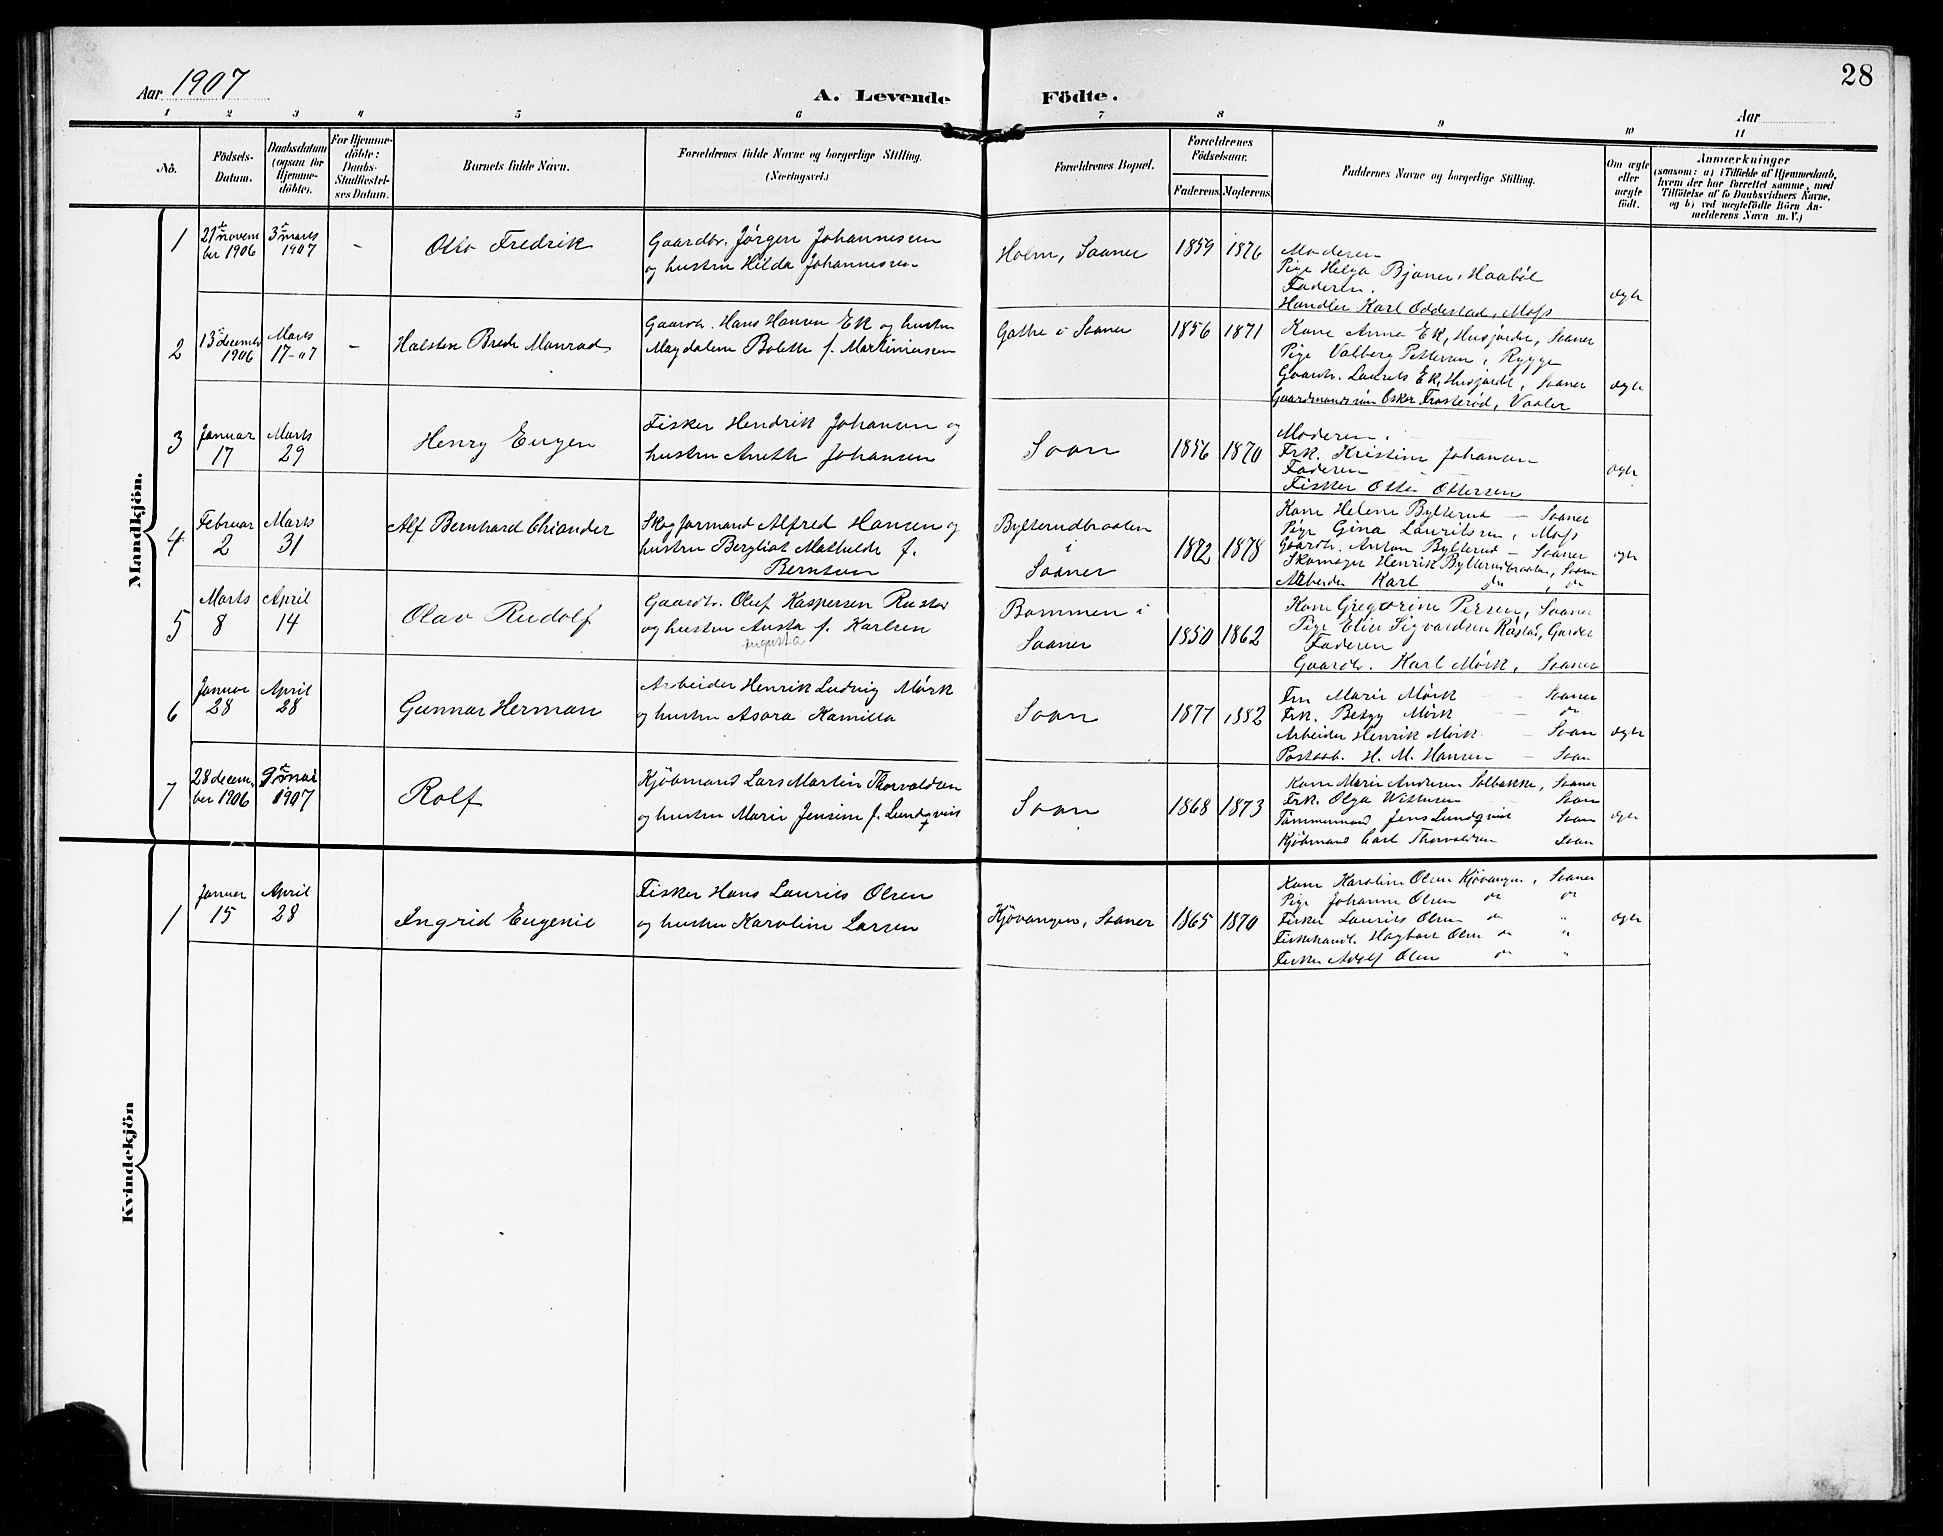 28
Aar 1907
A. Levende Födte.
Aar
1 2 3 4 5 6 7 8 9 10 11
No.
Födsels-
Datum.
Daabsdatum
(ogsaa for
Hjemme-
döbte).
For Hjemme-
döbte:
Daabs-
Stadfæstel-
ses Datum.
Barnets fulde Navn.
Forældrenes fulde Navne og borgerlige Stilling.
(Næringsvei.)
Forældrenes Bopæl.
Forældrenes
Födselsaar.
Faderens. Moderens.
Faddernes Navne og borgerlige Stilling.
Om ægte
eller
uægte
födt.
Anmærkninger
(saasom: a) i Tilfælde af Hjemmedaab,
hvem der har forrettet samme, med
Tilföielse af to Daabsvidners Navne,
og b) ved uægtefödte Börn An-
melderens Navn m. V.)
Mandkjön.
1
21 novem
ber 1906
3 marts
1907
–
Otto Fredrik
Gaardbr. Jørgen Johannesen
og hustru Hilda Johannesen
Holm, Saaner
1859 1876
Moderen
Pige Helga Bjaner, Haabøl
Faderen.
Handler Karl Oddestad, Moss
ægte
2
13 december
1906
Marts
17-07
–
Halsten Brede Monrad
Gaardbr. Hans Hansen Ek og hustru
Magdalene Bolette f. Martiniusen
Gathe i Saaner
1856 1871
Kone Anna Ek, Husjordet, Saaner
Pige Valberg Pettersen, Rygge
Gaardbr. Laurits Ek, Husjordet, Saaner
Gaardmandssøn Oskar Frosterød, Vaaler
ægte
3
Januar
17
Marts
29
Henry Eugen
Fisker Hendrik Johansen og
hustru Anette Johansen
Soon
1856 1870
Moderen.
Frk. Kristine Johansen
Faderen
Fisker Otto Ottersen
ægte
4
Februar
2
Marts
31
Alf Bernhard Chiander
Skogformand Alfred Hansen og
hustru Bergliot Mathilde f.
Berntsen
Bylterudbraaten
i
Saaner
1872 1878
Kone Helene Bylterud – Saaner
Pige Gina Lauritsen, Moss
Gaardbr. Anton Bylterud – Saaner
Skomager Henrik Bylterudbraaten, Saaner
Arbeider Karl do, do
ægte
5
Marts
8
April
14
Olav Rudolf
Gaardbr. Oluf Kaspersen Rustad
og hustru Austa f. Karlsen
augusta
Bommen i
Saaner
1850 1862
Kone Gregorine Persen, Saaner
Pige Elise Sigvardsen Råstad, Garder
Faderen
Gaardbr. Karl Mørk, Saaner
6
Januar
28
April
28
Gunnar Herman
Arbeider Henrik Ludvig Mørk
og hustru Asora Kamilla
Soon
1877 1882
Fru Marie Mørk – Saaner
Frk. Betzy Mørk – do
Arbeider Henrik Mørk – Soon
Postaab. H. M. Hansen – Soon
ægte
7
28 decem
ber 1906
9 mai
1907
Rolf
Kjøbmand Lars Martin Thorvaldsen
og hustru Marie Jensine f. Lundqvist
Soon
1868 1873
Kone Marie Andersen Solbakke, Saaner
Frk. Olga – Soon
Tømmermand Jens Lundqvist Soon
Kjøbmand Carl Thorvaldsen Soon
ægte
Kvindekjön
1
Januar
15
April
28
Ingrid Eugenie
Fisker Hans Laurits Olsen
og hustru Karoline Larsen
Kjøvangen, Saaner
1865 1870
Kone Karoline Olsen Kjøvangen, Saaner
Pige Johanne Olsen do do
Fisker Laurits Olsen do "
Fiskehandl. Hagbart Olsen do "
Fisker Adolf Olsen do "
ægte